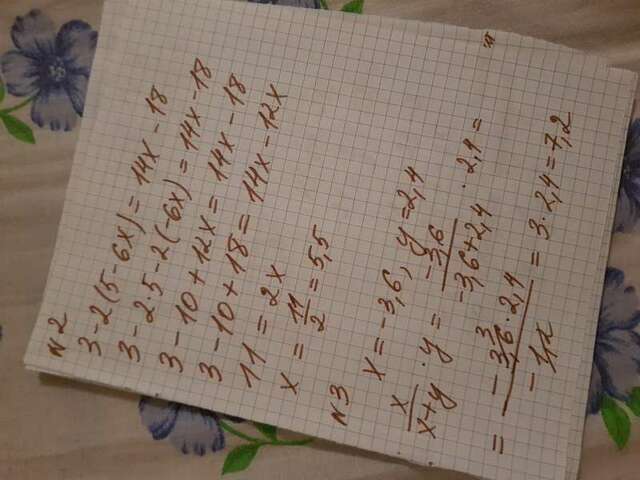 №2
3-2(5-6x) = 14x - 18
3-2·5-2(-6x) = 14x - 18
3-10+12x = 14x - 18
3-10+18 = 14x - 12x
11 = 2x
x = 11/2 = 5,5
№3
x = -3,6, y = 2,4
x/(x+y) · y = -3,6/(-3,6+2,4) · 2,4 =
= -3,6 · 2,4/-1,2 = 3 · 2,4 = 7,2